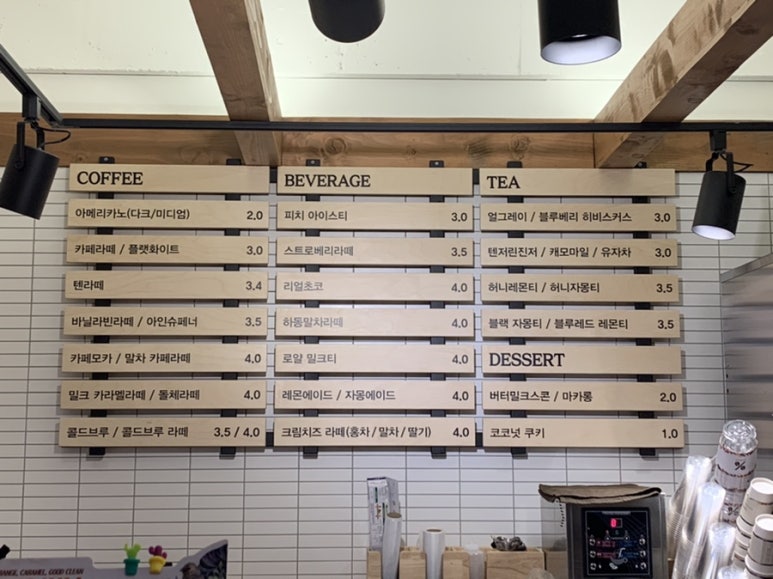 COFFEE
아메리카노(다크/미디엄) 2.0
카페라떼 / 플랫화이트 3.0
텐라떼 3.4
바닐라빈라떼 / 아인슈페너 3.5
카페모카 / 말차 카페라떼 4.0
밀크 카라멜라떼 / 돌체라떼 4.0
콜드브루 / 콜드브루 라떼 3.5 / 4.0
BEVERAGE
피치 아이스티 3.0
스트로베리라떼 3.5
리얼초코 4.0
하동말차라떼 4.0
로얄 밀크티 4.0
레몬에이드 / 자몽에이드 4.0
크림치즈 라떼(홍차 / 말차 / 딸기) 4.0
TEA
얼그레이 / 블루베리 히비스커스 3.0
텐저린진저 / 캐모마일 / 유자차 3.0
허니레몬티 / 허니자몽티 3.5
블랙 자몽티 / 블루레드 레몬티 3.5
DESSERT
버터밀크스콘 / 마카롱 2.0
코코넛 쿠키 1.0
%
ANGE, CARAMEL, GOOD CLEAN